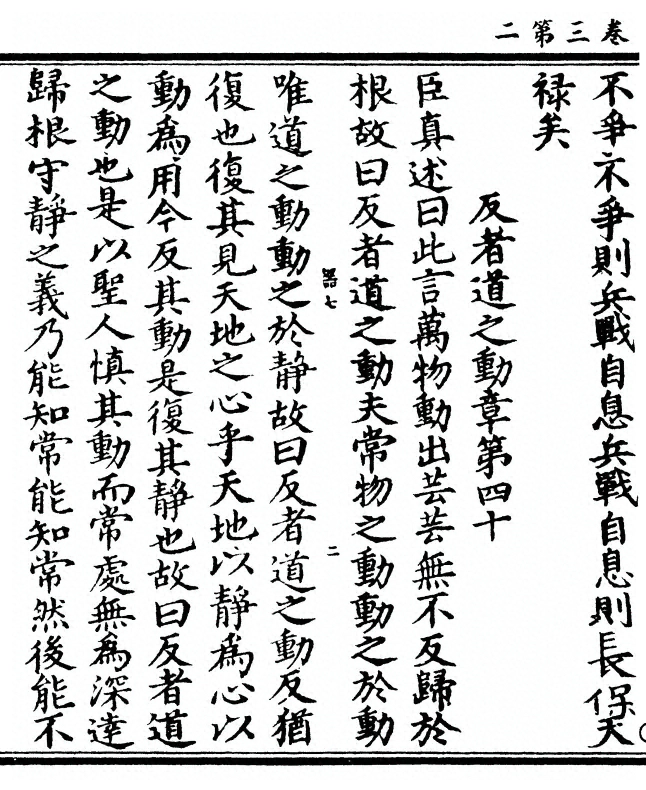 卷三第二
不爭不爭則兵戰自息兵戰自息則長保天
禄矣
反者道之動章第四十
臣真述曰此言萬物動出芸芸無不反歸於
根故曰反者道之動夫常物之動動之於動
器七
二
唯道之動動之於静故曰反者道之動反猶
復也復其見天地之心乎天地以靜爲心以
動爲用今反其動是復其靜也故曰反者道
之動也是以聖人慎其動而常處無爲深達
歸根守靜之義乃能知常能知常然後能不